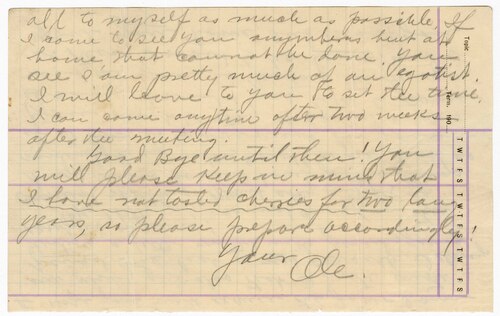 all to myself as much as possible. If
I come to see you anywhere but at
home, that cannot be done. You
see I am pretty much of an egotist.
I will leave to you to set the time.
I can come anytime after two weeks
after the meeting.
Good Bye until then! You
will please keep in mind that
I have not tasted cherries for two long
years, so please prepare accordingly!
Your Ole.
Topic
Term, 190
T W T F S T W T F S T W T F S